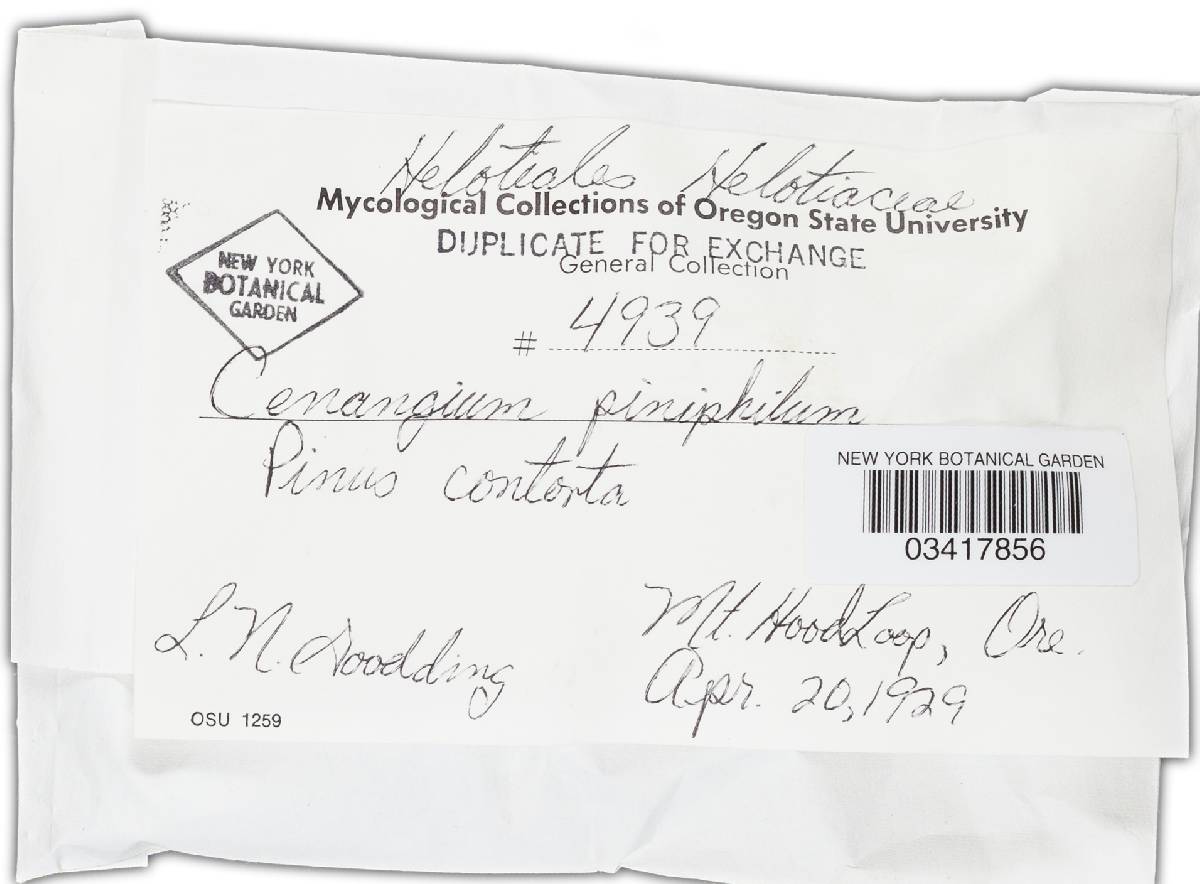 Helotiales Helotiaceae
Mycological Collections of Oregon State University
DUPLICATE FOR EXCHANGE
General Collection
NEW YORK
BOTANICAL
GARDEN
# 4939
Cenangium piniphilum
Pinus contorta
NEW YORK BOTANICAL GARDEN
03417856
L. N. Goodding
Mt. Hood Loop, Ore.
Apr. 20, 1929
OSU 1259